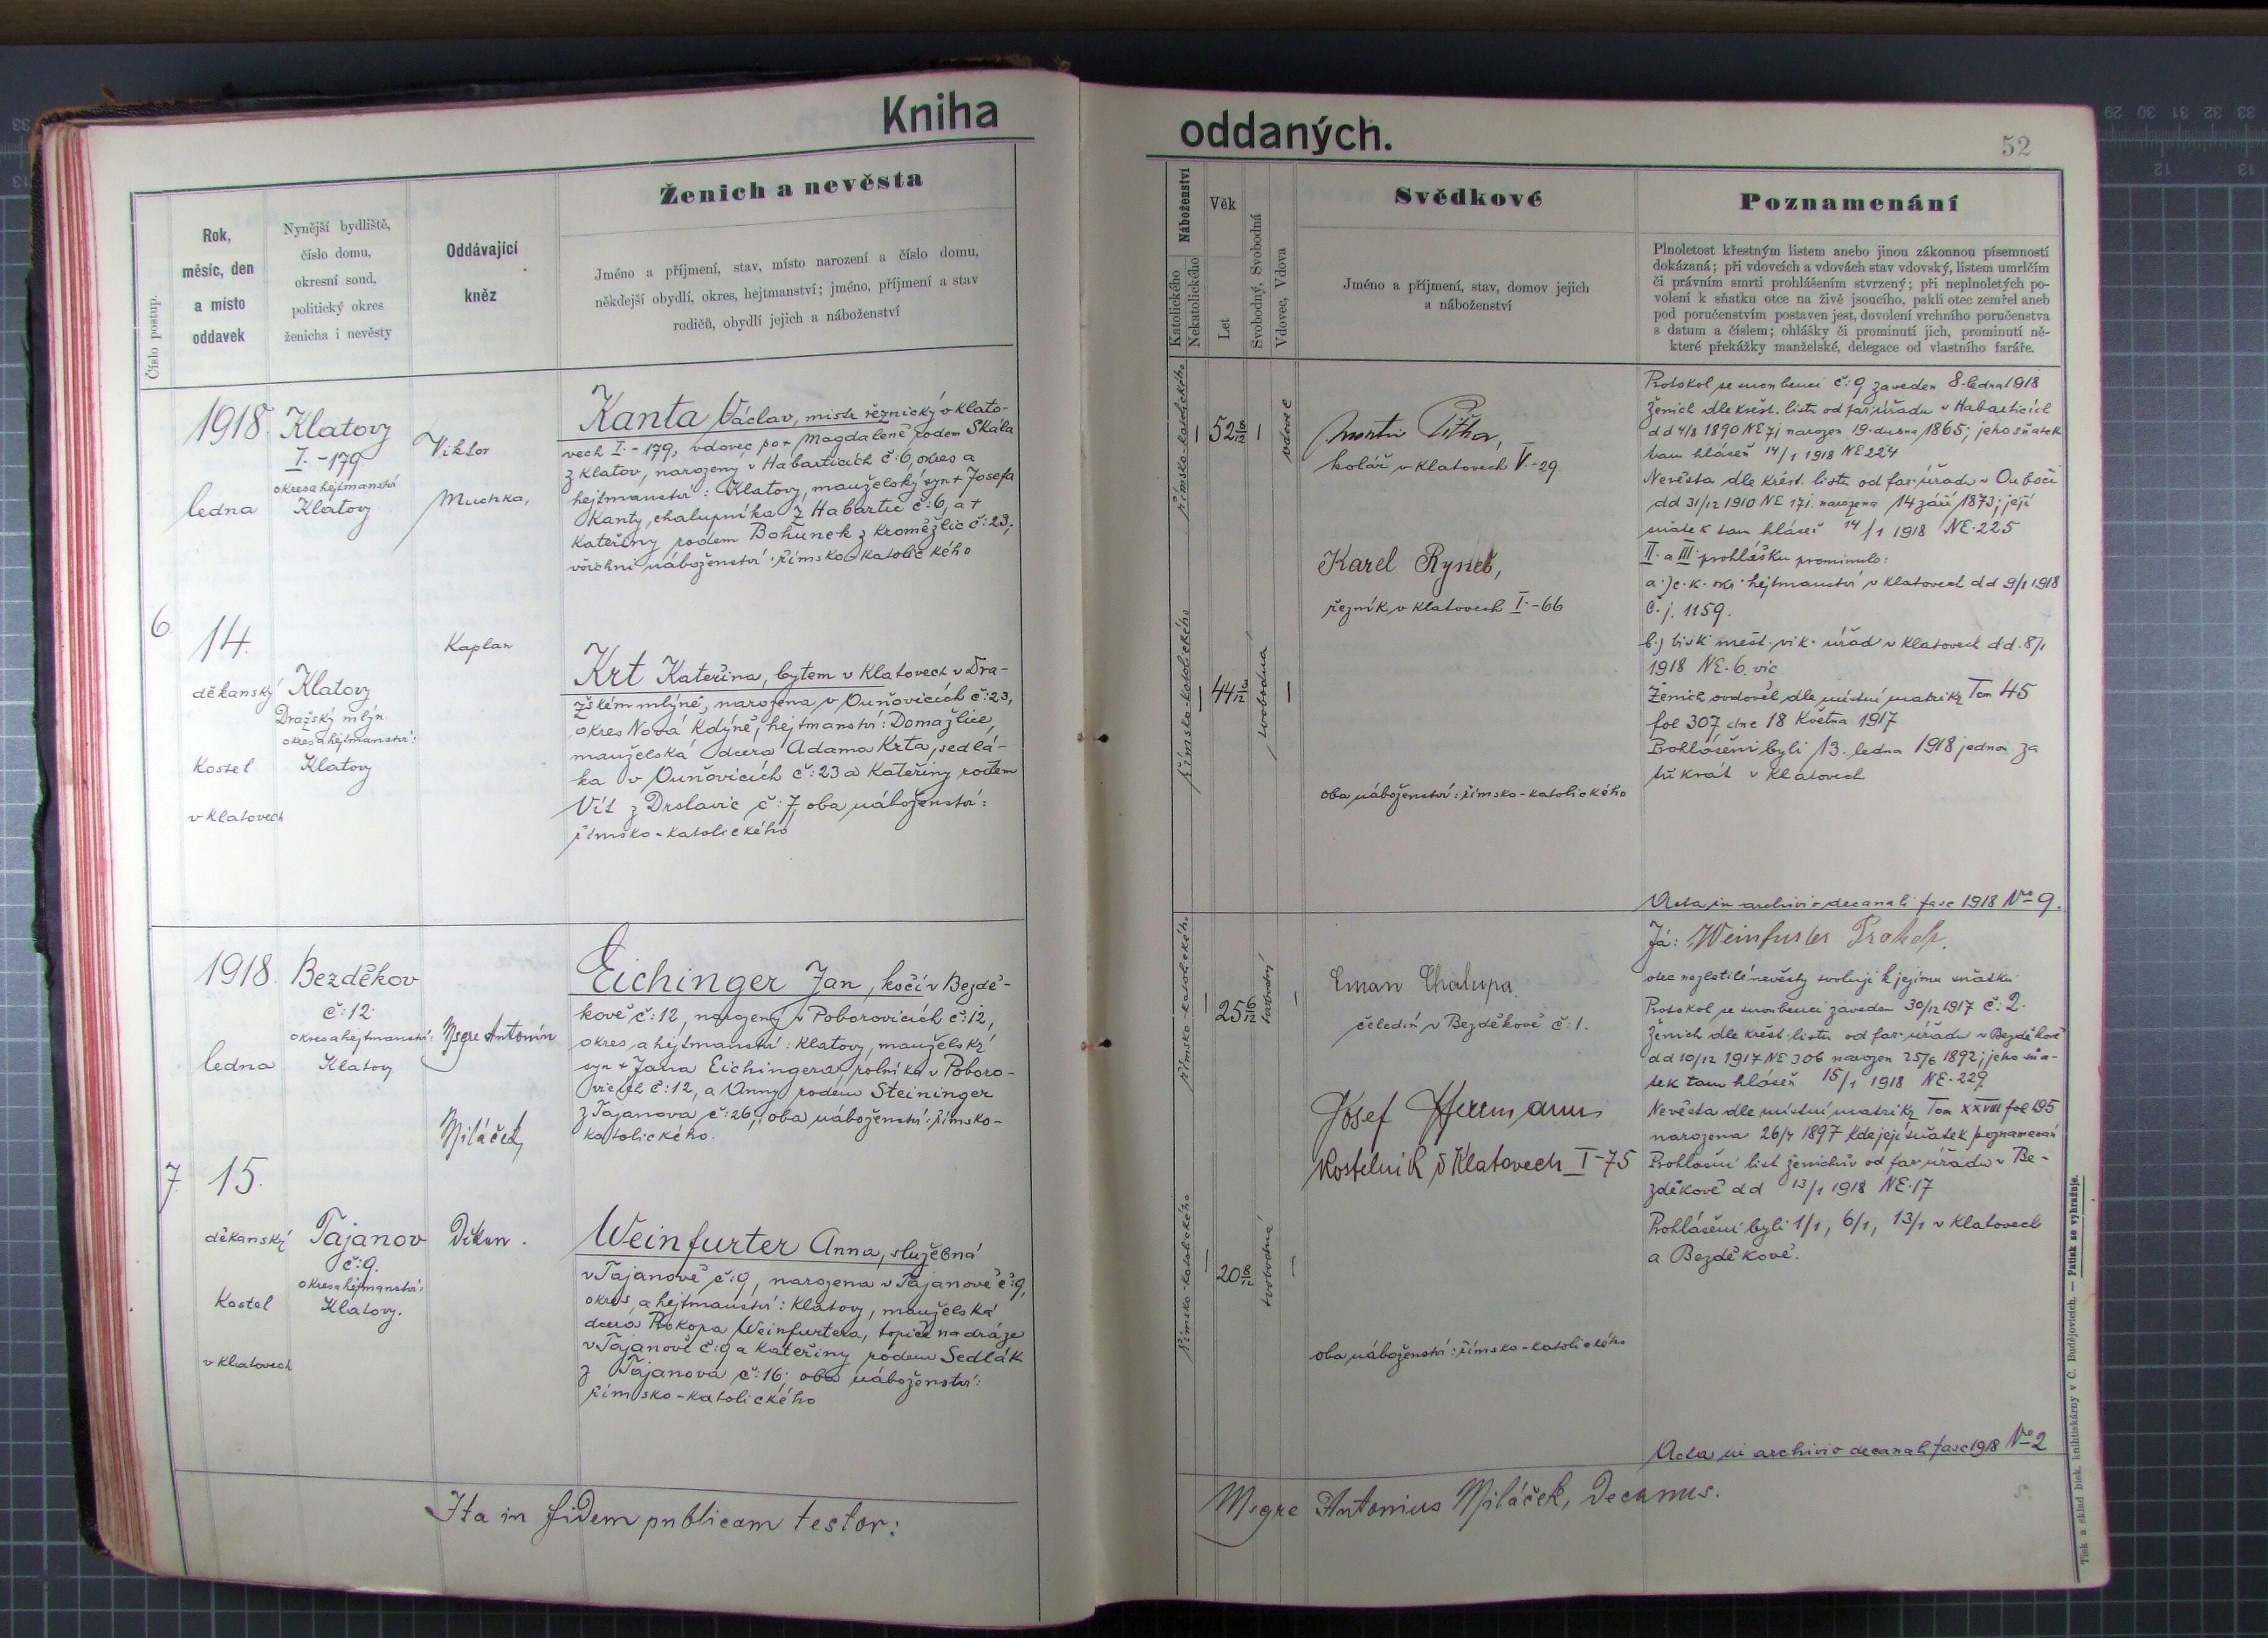 Kniha
oddaných.
52
Číslo postup.
Rok,
měsíc, den
a místo
oddavek
Nynější bydliště,
číslo domu,
okresní soud,
politický okres
ženicha i nevěsty
Oddávající
kněz
Ženich a nevěsta
Jméno a příjmení, stav, místo narození a číslo domu,
někdejší obydlí, okres, hejtmanství; jméno, příjmení a stav
rodičů, obydlí jejich a náboženství
Náboženství
Katolického
Nekatolického
Věk
Let
Svobodný, Svobodná
Vdovec, Vdova
Svědkové
Jméno a příjmení, stav, domov jejich
a náboženství
Poznamenání
Plnoletost křestným listem anebo jinou zákonnou písemností
dokázaná; při vdovcích a vdovách stav vdovský, listem umrlčím
či právním smrti prohlášením stvrzený; při neplnoletých po-
volení k sňatku otce na živě jsoucího, pakli otec zemřel aneb
pod poručenstvím postaven jest, dovolení vrchního poručenstva
s datum a číslem; ohlášky či prominutí jich, prominutí ně-
které překážky manželské, delegace od vlastního faráře.
6
1918.
ledna
14.
děkanský
Kostel
v Klatovech
Klatovy
I.-179
okres a hejtmanství
Klatovy
Klatovy
Dražský mlýn
okres a hejtmanství:
Klatovy
Viktor
Muchka,
Kaplan
Kanta Václav, mistr řeznický v Klato-
vech I.-179, vdovec po + Magdaleně rodem Skala
z Klatov, narozený v Habarticích č:6, okres a
hejtmanství: Klatovy, manželský syn + Josefa
Kanty, chalupníka z Habartic č:6, a +
Kateřiny rodem Bohunek z Kroměžlic č:23;
všichni náboženství: římsko-katolického
Krt Kateřina, bytem v Klatovech v Dra-
žském mlýně, narozena v Ouňovicích č:23,
okres Nová Kdýně, hejtmanství: Domažlice,
manželská dcera Adama Krta, sedlá-
ka v Ouňovicích č:23 a Kateřiny rodem
Vít z Drslavic č:7, oba náboženství:
římsko-katolického
římsko-katolického
52 8/12
vdovec
římsko-katolického
44 3/12
svobodná
Martin Pithar,
kolář v Klatovech V.-29.
Karel Ryneš,
řezník v Klatovech I.-66
oba náboženství: římsko-katolického
Protokol se snoubenci č:9 zaveden 8. ledna 1918
Ženich dle křest. listu od far. úřadu v Habarticích
dd 4/8 1890 NE 71 narozen 19. dubna 1865; jeho sňatek
tam hlášen 14/1 1918 NE 224
Nevěsta dle křest. listu od far. úřadu v Ouboči
dd 31/12 1910 NE 171. narozena 14 září 1873; její
sňatek tam hlášen 14/1 1918 NE. 225
II. a III. prohlášku prominulo:
a.) c. k. okr. hejtmanství v Klatovech dd 9/1 1918
č. j. 1159.
b.) bisk. měst. vik. úřad v Klatovech dd. 8/1
1918 NE. 6. vic
Ženich ovdověl dle místní matriky Tom 45
fol 307 dne 18 Května 1917
Prohlášeni byli 13. ledna 1918 jednou za
tři krát v Klatovech
Acta in archivio decanali fasc 1918 Nro 9.
7.
1918.
ledna
15.
děkanský
Kostel
v Klatovech
Bezděkov
č:12.
okres a hejtmanství:
Klatovy
Tajanov
č:9.
okres a hejtmanství:
Klatovy.
Msgre Antonín
Miláček,
Děkan.
Eichinger Jan, kočí v Bezdě-
kově č:12, narozený v Poborovicích č:12,
okres, a hejtmanství: Klatovy, manželský
syn + Jana Eichingera, rolníka v Poboro-
vicích č:12, a Anny rodem Steininger
z Tajanova č:26, oba náboženství: římsko-
katolického.
Weinfurter Anna, služebná
v Tajanově č:9, narozena v Tajanově č:9,
okres, a hejtmanství: Klatovy, manželská
dcera Prokopa Weinfurtera, topiče na dráze
v Tajanově č:9 a Kateřiny rodem Sedlák
z Tajanova č:16; oba náboženství:
římsko-katolického
římsko-katolického
25 6/12
svobodný
římsko-katolického
20 8/12
svobodná
Eman Chalupa.
čeledín v Bezděkově č:1.
Josef Herrmann
Kostelník v Klatovech I-75
oba náboženství: římsko-katolického
Já: Weinfurter Prokop.
otec nezletilé nevěsty svoluji k jejímu sňatku
Protokol se snoubenci zaveden 30/12 1917 č:2.
Ženich dle křest. listu od far. úřadu v Bezděkově
dd 10/12 1917 NE 306 narozen 25/6 1892; jeho sňa-
tek tam hlášen 15/1 1918 NE. 229
Nevěsta dle místní matriky Tom XXVIII fol 195
narozena 26/4 1897 kde její sňatek poznamenán
Prohlašní list ženichův od far. úřadu v Be-
zděkově dd 13/1 1918 NE. 17
Prohlášeni byli 1/1, 6/1, 13/1 v Klatovech
a Bezděkově.
Acta in archivio decanali fasc 1918 Nro 2
Ita in fidem publicam testor:
Msgre Antonius Miláček, Decanus.
Tisk a sklad bisk. knihtiskárny v Č. Budějovicích. — Patisk se vyhražuje.